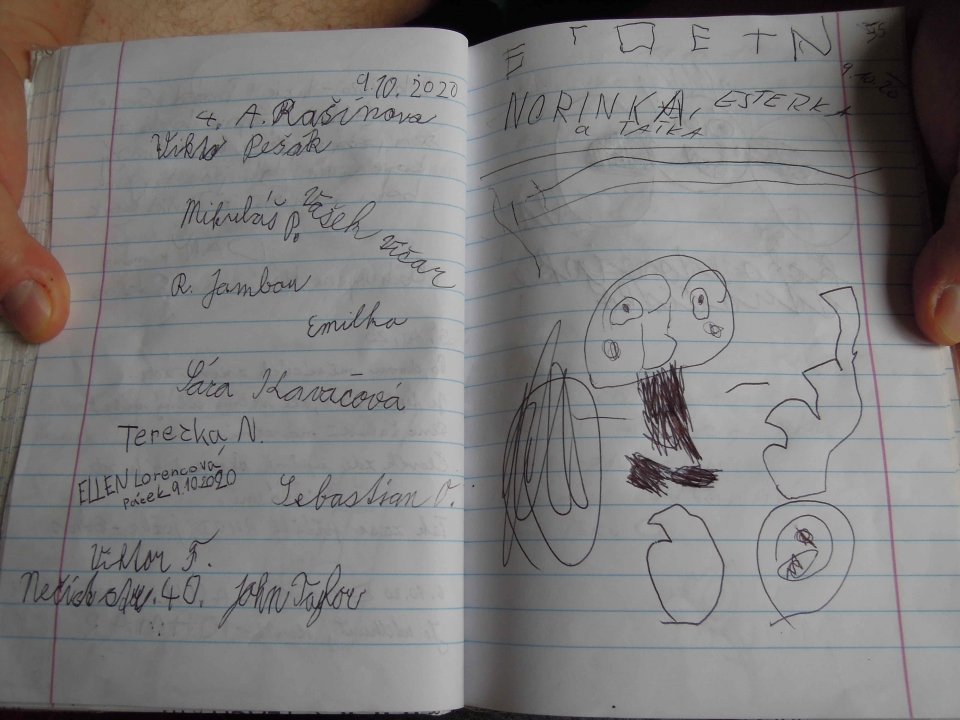 9.10.2020
4. A. Rašínova
Viktor Pešák
Mikuláš P. Vašek Vičar
R. Jambou
Emilka
Sára Kaváčová
Terezka N.
ELLEN Lorencová
Pátek 9.10.2020
Sebastian O.
Viktor F.
4O. John Taylor
E T O E T N 35
9.10.20
NORINKA, ESTERKA
a TAIKA